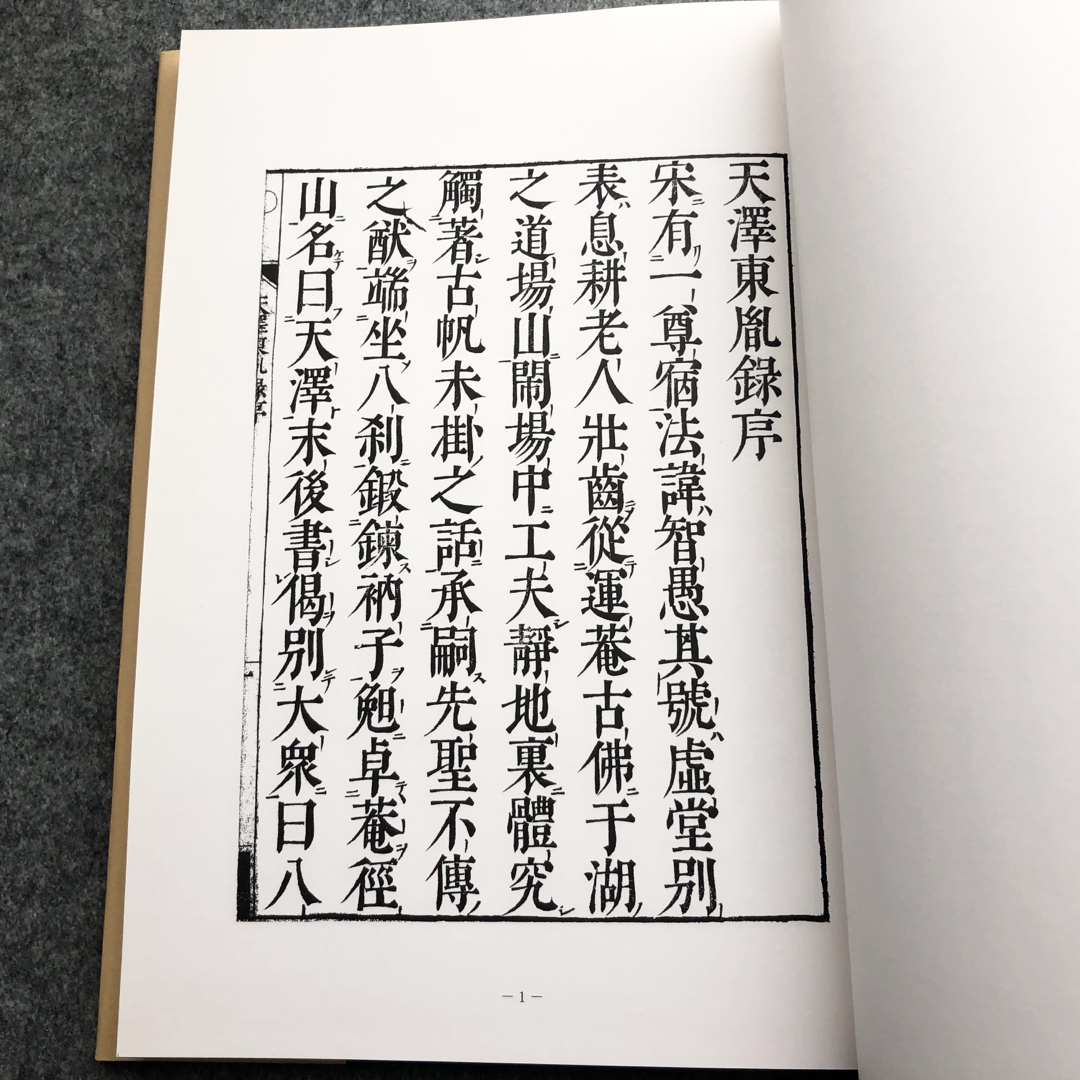 天澤東胤録序
宋有一尊宿法諱智愚其號虚堂別
表息耕老人壯齒從運菴古佛于湖
之道場山閙場中工夫靜地裏體究
觸著古帆未掛之話承嗣先聖不傳
之猷端坐八刹鍛鍊衲子卓菴徑
山名曰天澤末後書偈別大衆曰八
天澤東胤録序
一
― 1 ―